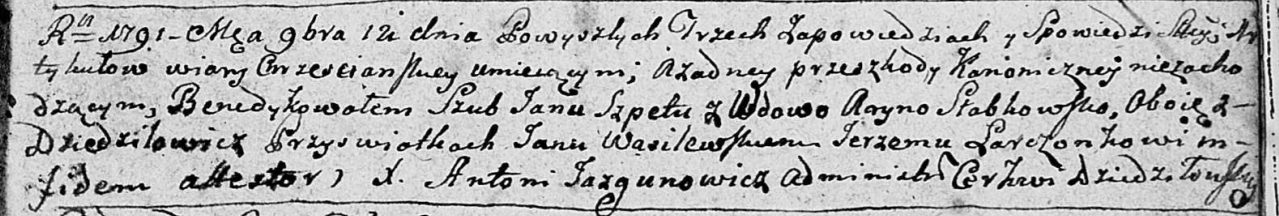 Rn 1791 - Męa 9bra 12i dnia Powyszłych Trzech Zapowiedziach y Spowiedzi Stey; Ar
tykułow wiary Chrzesciańskiey umieiącym; Ażadney przeszkody Kanoniczney niezacho
dzącym, Benedykowałem Szlub Janu Szpetu z Wdowo Aryno Słabkowsko, Oboię z -
Dziedziłowicz Przyswiatkach Janu Wasilewskiemu Jerzemu Łarczonkowi in -
fidem attestor) X. Antoni Jazgunowicz Administr Cerkwi Dziedziłowskiey